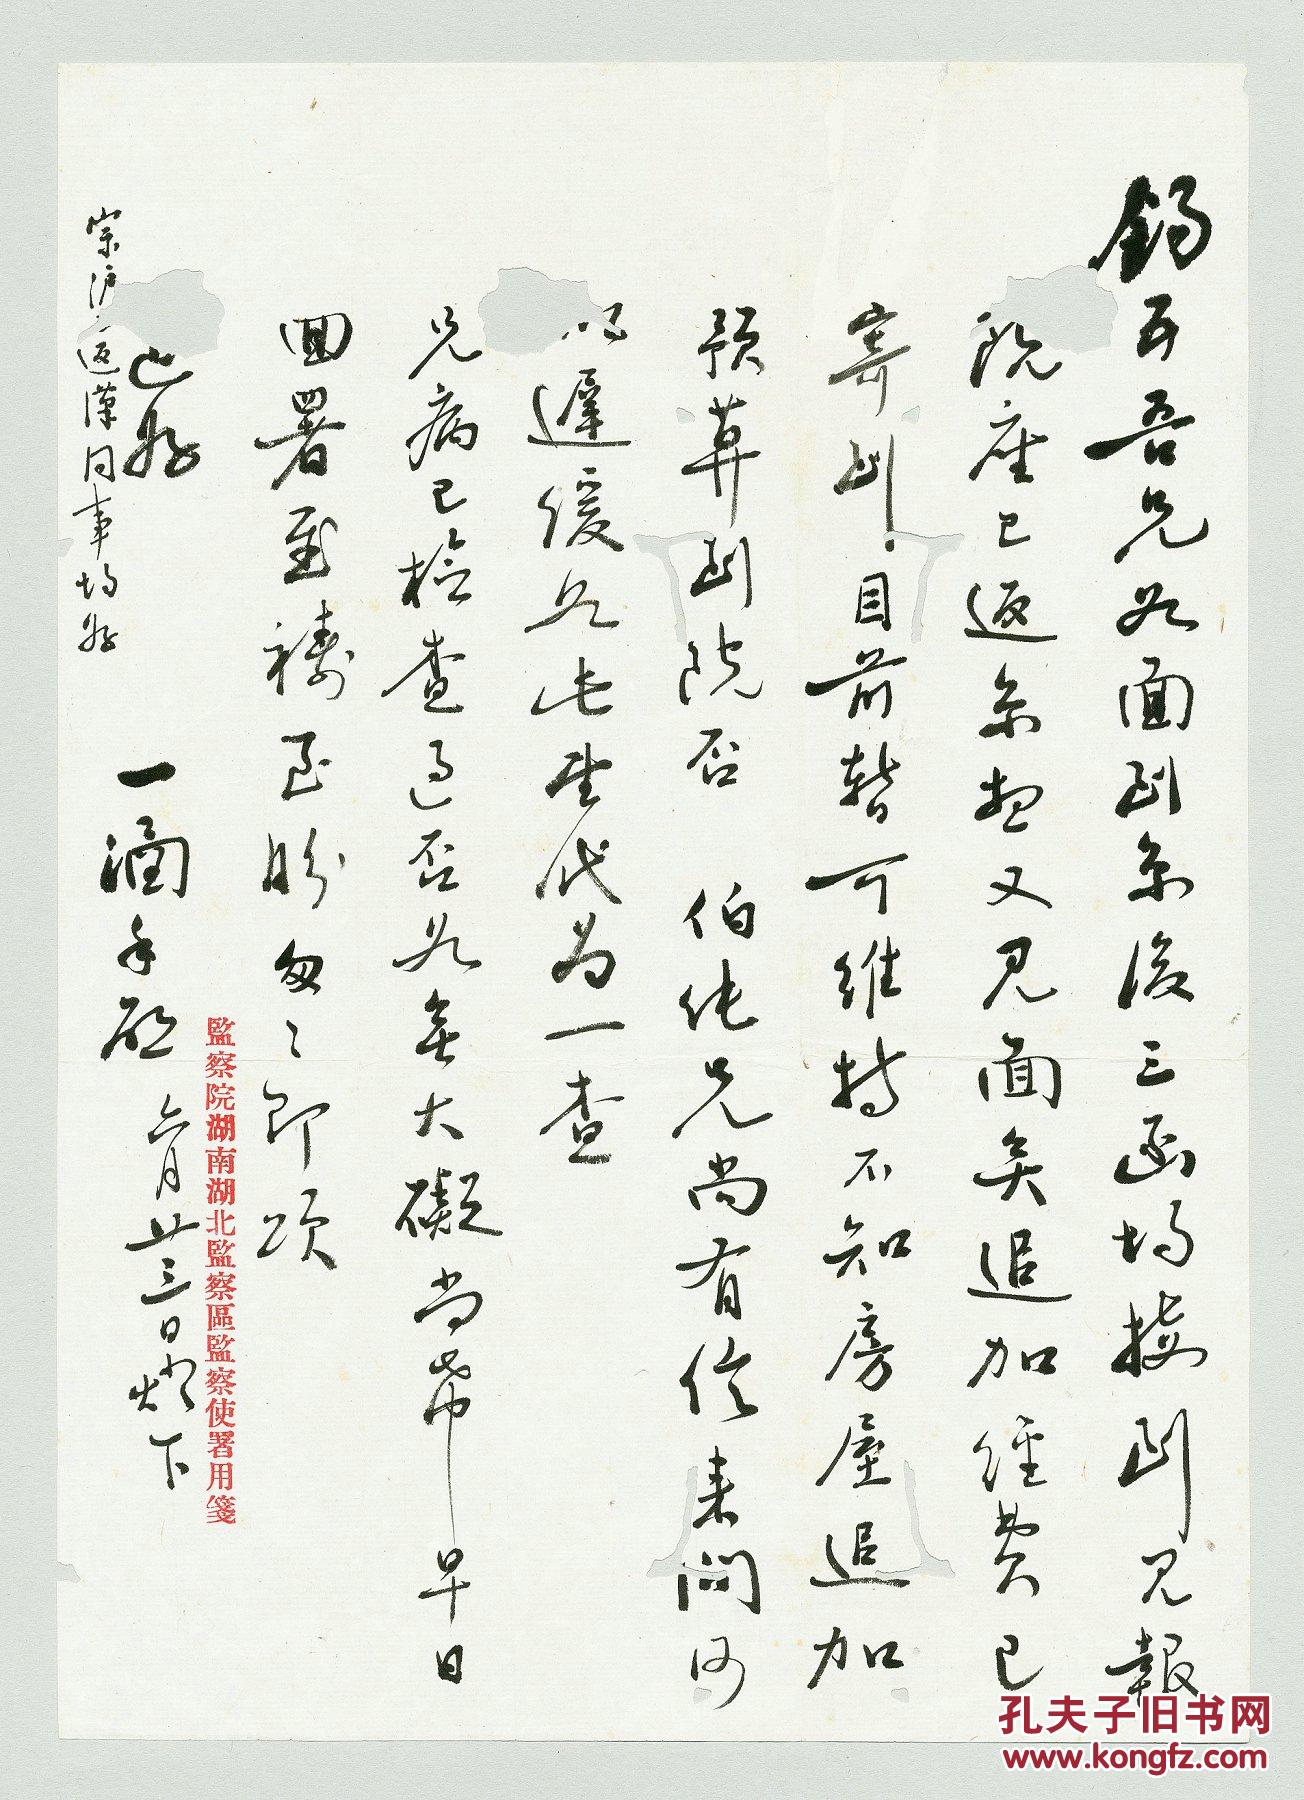 錫五吾兄如面到京後三函均接到見報
院座已返京想又見面矣追加經費已
寄到目前暫可維持不知房屋追加
預算到院否 伯純兄尚有信來問何
以遲緩如此望代為一查
兄病已檢查過否如無大礙尚希早日
回署至禱至盼匆匆即頌
近好
一涵手啟 六月廿三日燈下
返漢同事均好
監察院湖南湖北監察區監察使署用箋
孔夫子旧书网
www.kongfz.com